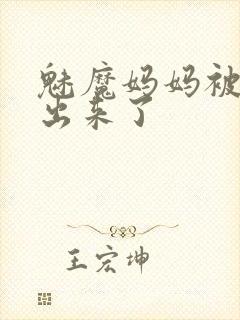 魅魔妈妈被
出来了
王宏坤